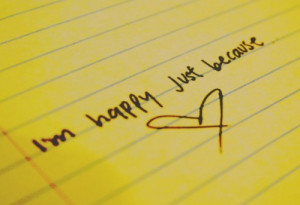 I'm happy Just because